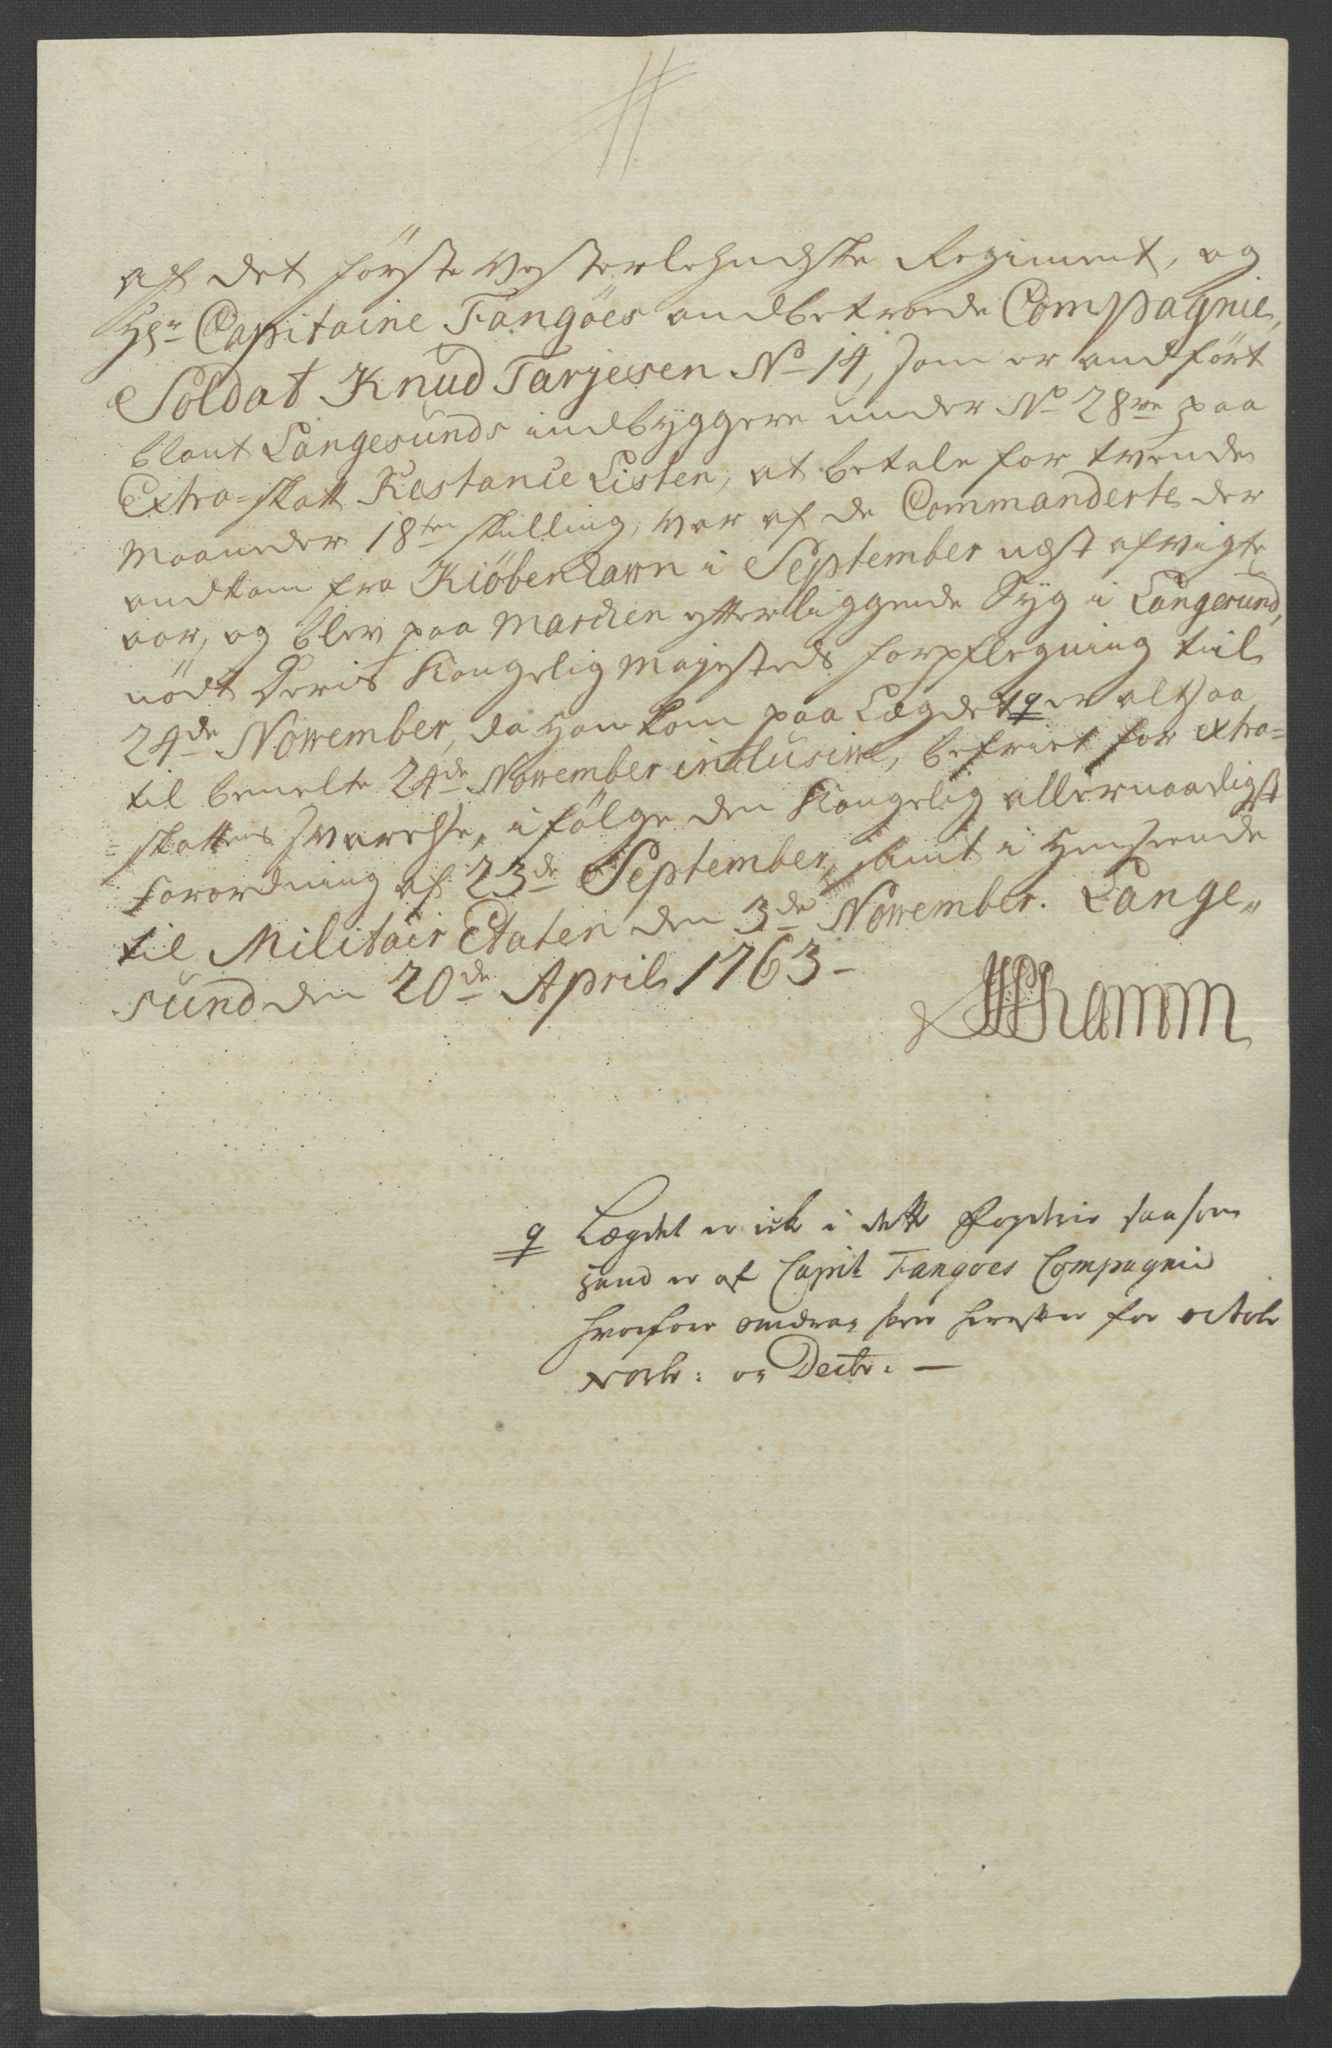 af det første Vesterlehnske Regiment, og
Hr Capitaine Fangöes andbetroede Compagnie,
Soldat Knud Tarjesen No 14, som er andført
blant Langesunds indbyggere under No 28ve paa
Extra-skatt Restance Listen, at betale for tvende
Maaneder 18ten skilling, var af de Commanderte der
andkom fra Kiöbenhawn i September næst afvigte
aar, og blev paa Marchen etterliggende Syg i Langesund,
nödt Deris Kongelig Majesteds forpflegning till
24de November, da han kom paa Lægdet q er altsaa
til bemelte 24de November inclusive, befriet for extra-
-skattens svarelse, i følge den Kongelig allernaadigst
Forordning af 23de September, samt i henseende
til Militair Etaten den 3de November. Lange„
sund den 20de April 1763-
Hramm
q Lægdet er ick i dette saasom
hand er af Capit Fangoes Compagnie
hvorfore for octobr
Novbr: og Decbr: —